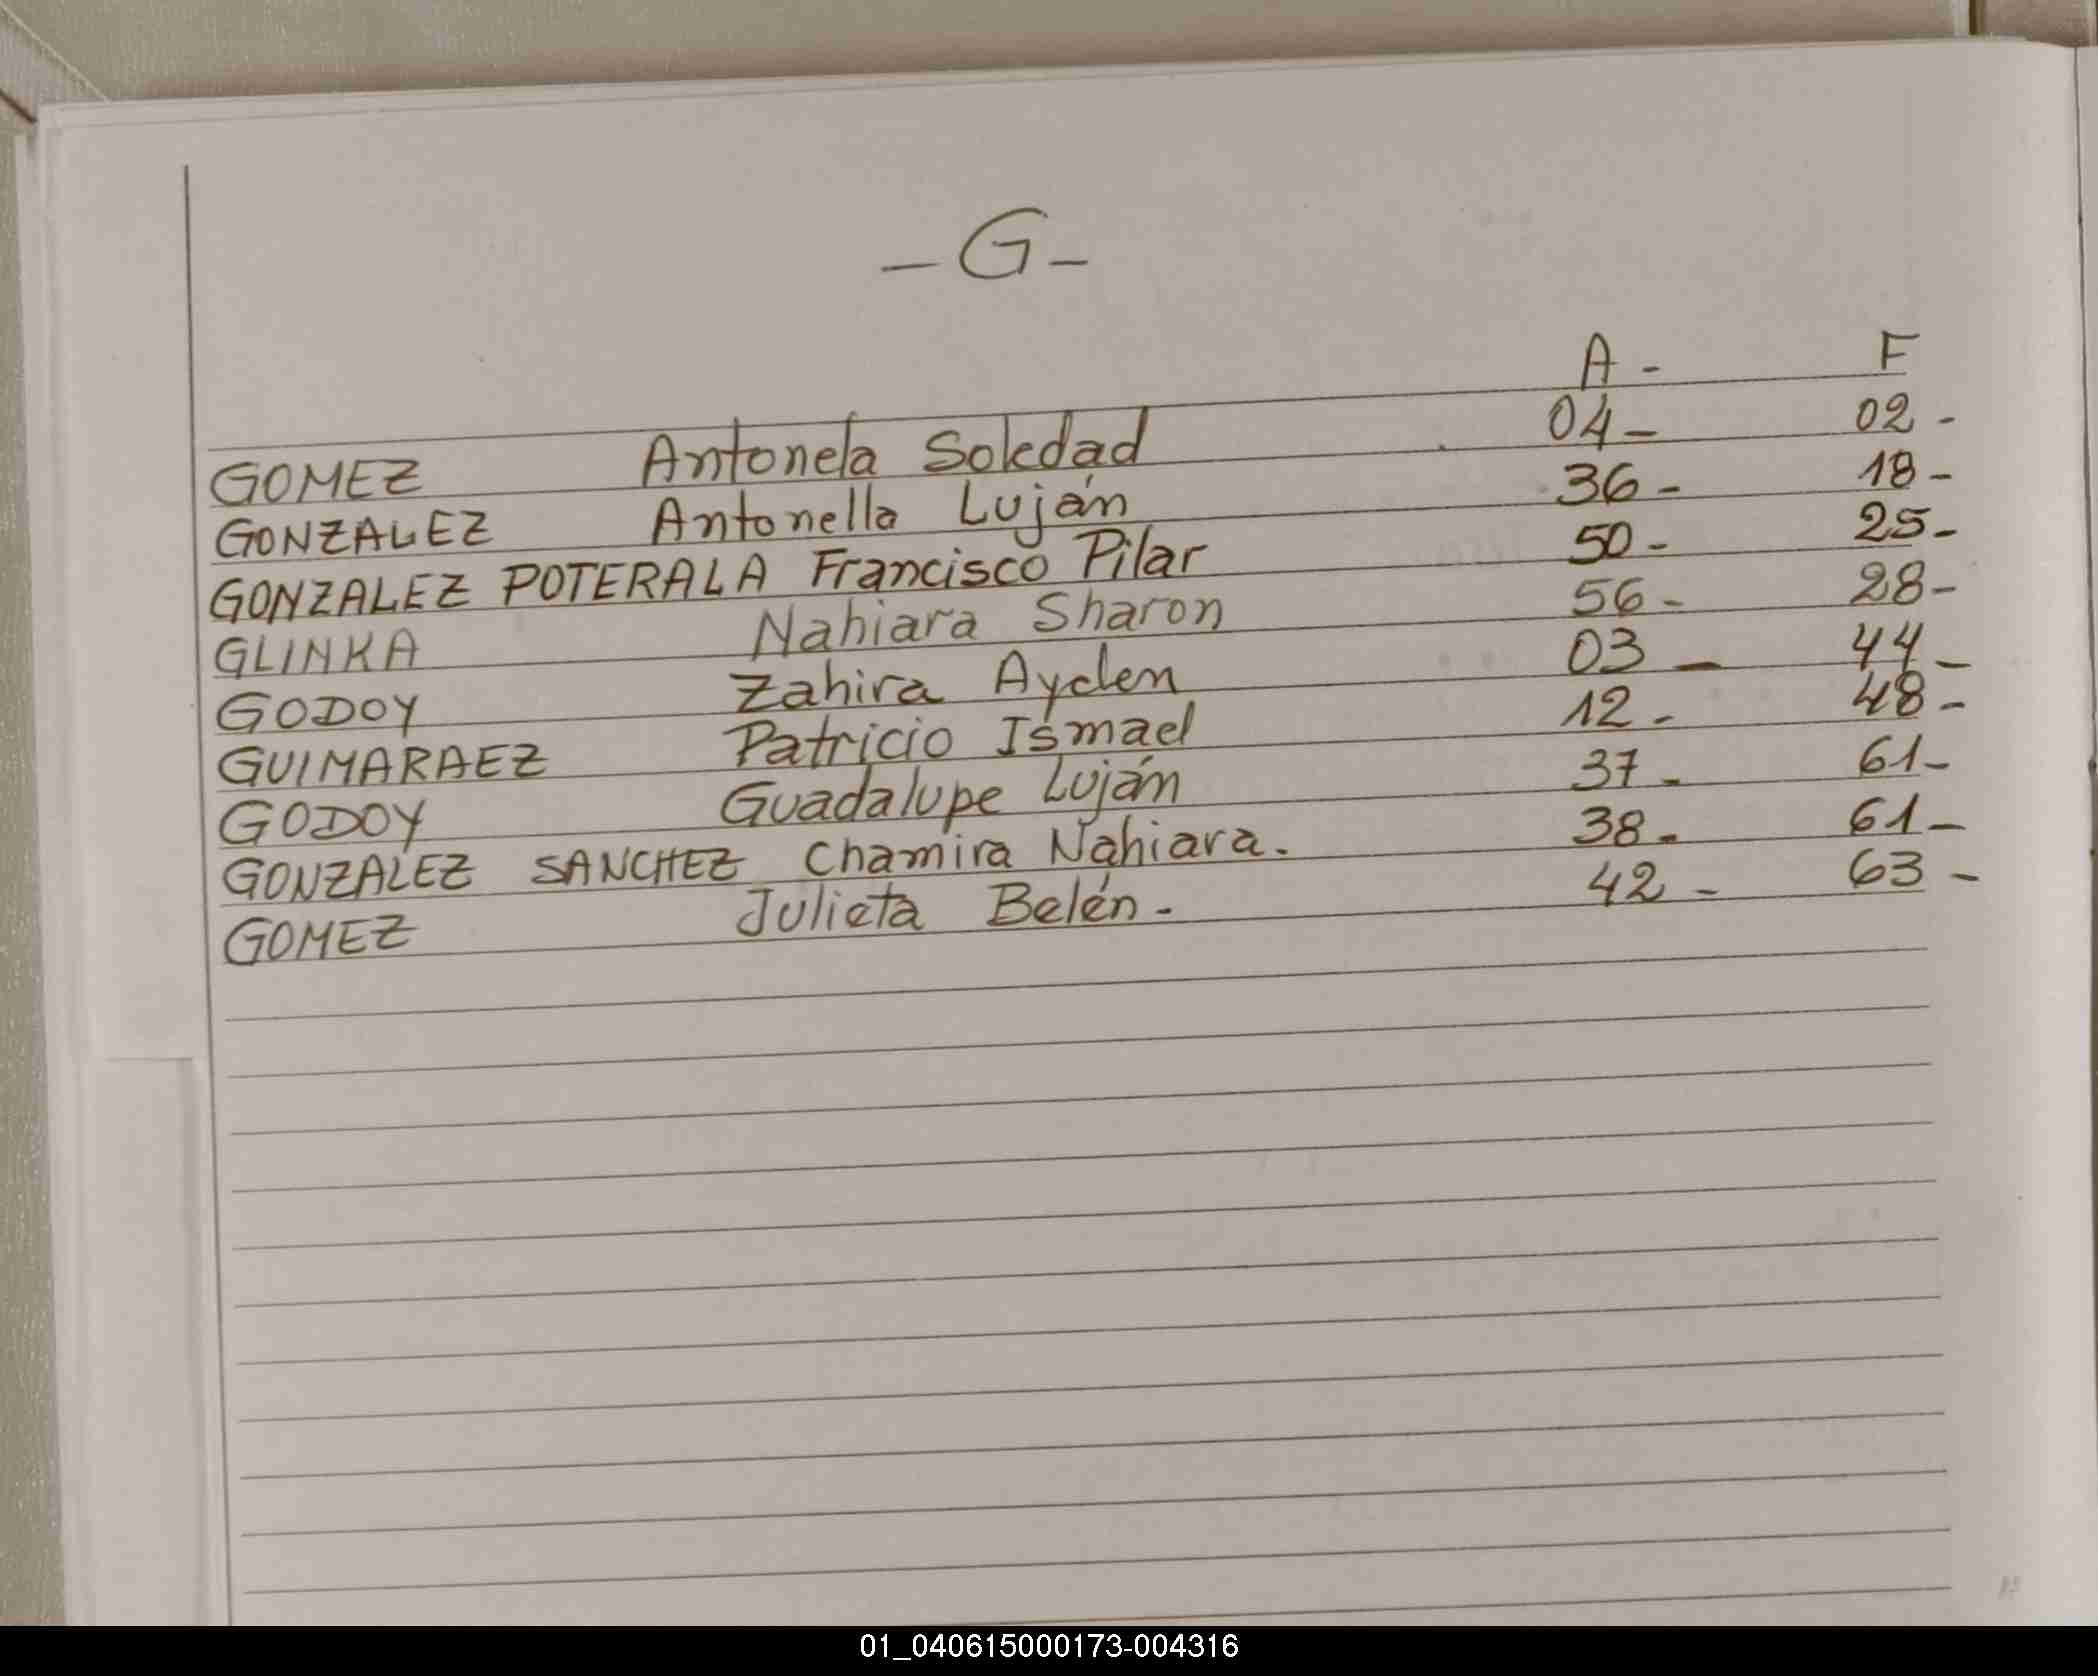 - G -
A - F
GOMEZ Antonela Soledad 04 - 02 -
GONZALEZ Antonella Luján 36 - 18 -
GONZALEZ POTERALA Francisco Pilar 50 - 25 -
GLINKA Nahiara Sharon 56 - 28 -
GODOY Zahira Ayden 03 - 44 -
GUIMARAEZ Patricio Ismael 12 - 48 -
GODOY Guadalupe Luján 37 - 61 -
GONZALEZ SANCHEZ Chamira Nahiara. 38 - 61 -
GOMEZ Julieta Belén - 42 - 63 -
01_040615000173-004316